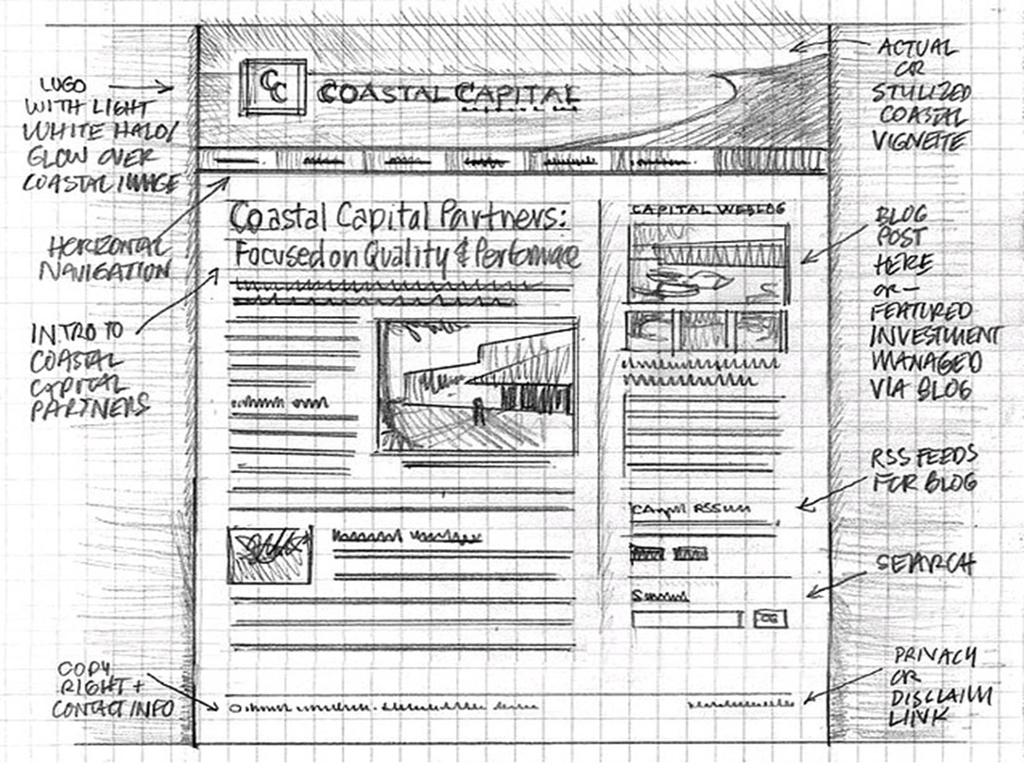 LOGO
WITH LIGHT
WHITE HALO/
GLOW OVER
COASTAL IMAGE
HORIZONTAL
NAVIGATION
INTRO TO
COASTAL
CAPITAL
PARTNERS
COPY
RIGHT +
CONTACT INFO
CC
COASTAL CAPITAL
Coastal Capital Partners:
Focused on Quality & Performance
CAPITAL WEBLOG
ACTUAL
OR
STYLIZED
COASTAL
VIGNETTE
BLOG
POST
HERE
OR—
FEATURED
INVESTMENT
MANAGED
VIA BLOG
RSS FEEDS
FOR BLOG
SEARCH
PRIVACY
OR
DISCLAIM
LINK